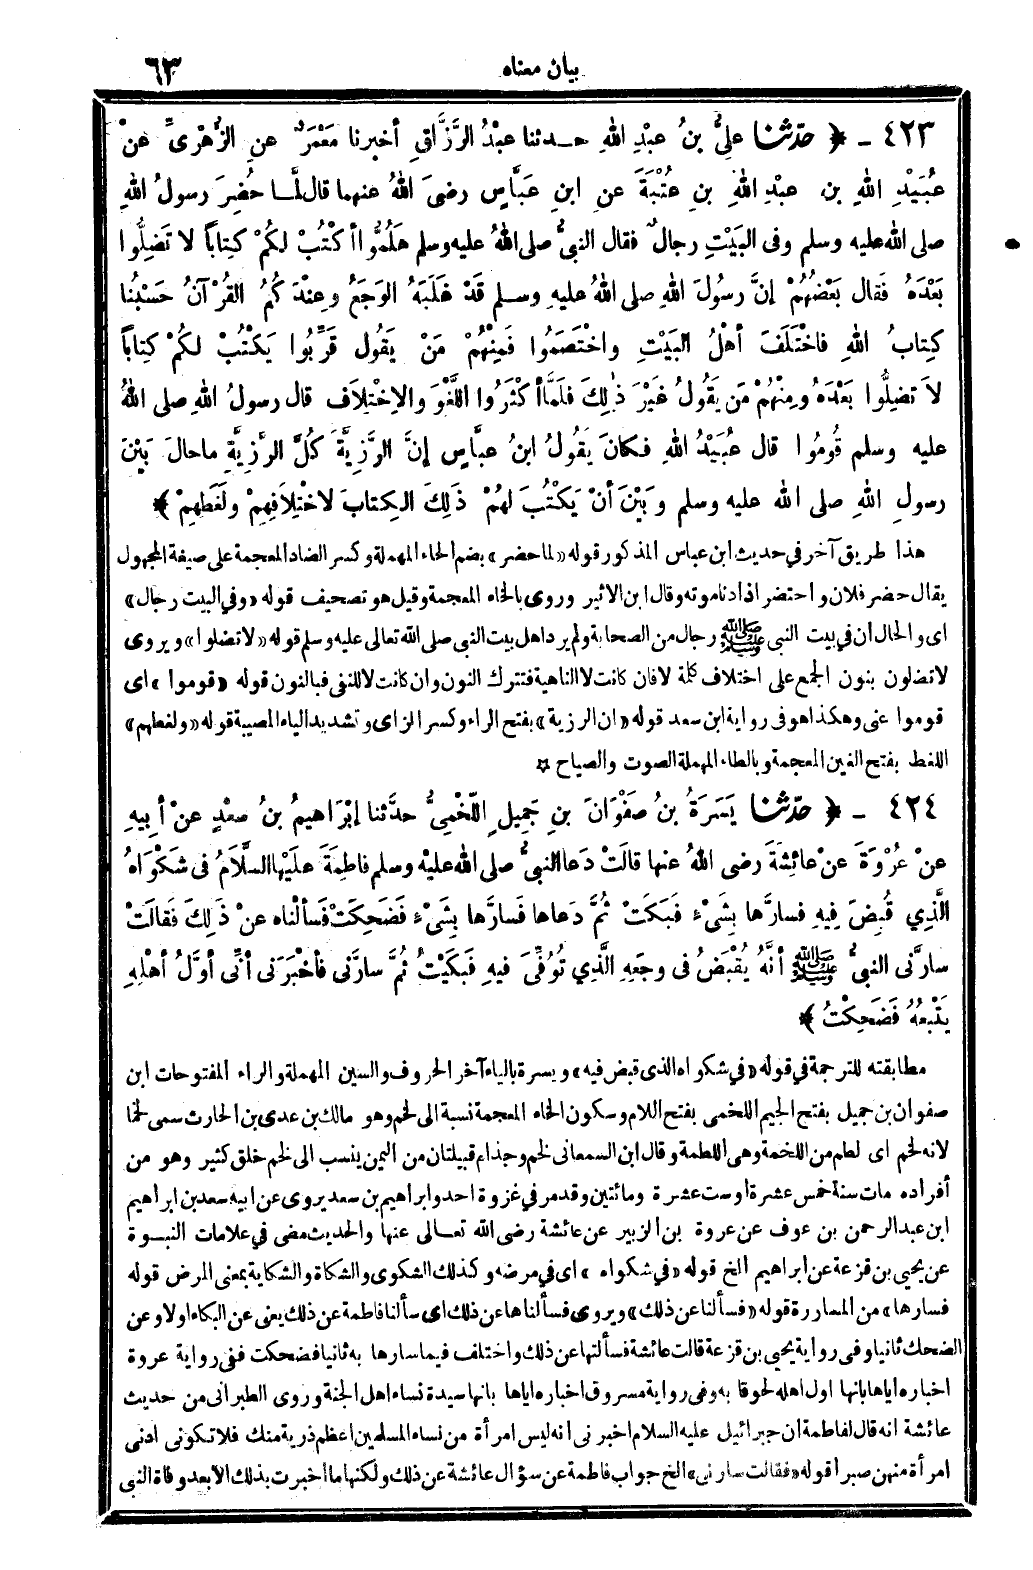 بيان معناه ٦٣
٤٢٣ - ﴿ حَدَّثَنَا عَلِيُّ بنُ عبْدِ اللهِ حـدثنا عبْدُ الرَّزَّاقِ أخبرنا مَعْمَرٌ عنِ الزُّهْرِىِّ عنْ
عُبَيْدِ اللهِ بنِ عبْدِ اللهِ بنِ عُتْبَةَ عنِ ابنِ عَبَّاسٍ رضى اللهُ عنهما قال لَمَّا حُضِرَ رسولُ اللهِ
صلى الله عليه وسلم وفى البَيْتِ رجالٌ فقال النبىُّ صلى اللهُ عليه وسلم هَلُمُّوا أكْتُبْ لكُمْ كِتاباً لا تَضِلُّوا
بَعْدَهُ فَقال بَعْضُهُمْ إنَّ رسُولَ اللهِ صلى اللهُ عليهِ وسـلم قَدْ غَلَبَهُ الوَجَعُ وعِنْدَكُمُ القُرْآنُ حَسْبُنا
كِتابُ اللهِ فاخْتَلَفَ أهْلُ البَيْتِ واخْتَصَمُوا فَمِنْهُمْ مَنْ يَقُول قَرِّبُوا يَكْتُبْ لكُمْ كِتاباً
لاَ تَضِلُّوا بَعْدَهُ ومِنْهُمْ مَن يَقُولُ غَيْرَ ذٰلِكَ فلَمَّا أكْثَرُوا اللَّغْوَ والاِخْتِلاَف قال رسولُ اللهِ صلى اللهُ
عليه وسلم قُومُوا قال عُبَيْدُ اللهِ فـكانَ يَقُولُ ابنُ عبَّاسٍ إنَّ الرَّزِيَّةَ كُلَّ الرَّزِيَّةِ ماحالَ بَيْنَ
رسولِ اللهِ صلى الله عليه وسلم وبَيْنَ أنْ يَكْتُبَ لهُمْ ذلِكَ الـكِتابَ لاخْتِلاَفِهِمْ ولَغَطِهِمْ ﴾
هذا طريق آخر في حديث ابن عباس المذكور قوله «لما حضر» بضم الحاء المهملة وكسر الضاد المعجمة على صيغة المجهول
يقال حضر فلان واحتضر اذا دنا موته وقال ابن الاثير وروى بالخاء المعجمة وقيل هو تصحيف قوله «وفي البيت رجال»
اى والحال ان في بيت النبي ﷺ رجال من الصحابة ولم يرد اهل بيت النبي صلى الله تعالى عليه وسلم قوله «لا تضلوا» ويروى
لا تضلون بنون الجمع على اختلاف كلمة لا فان كانت لا الناهية فتترك النون وان كانت لا للنفى فبالنون قوله «قوموا» اى
قوموا عنى وهكذا هو فى رواية ابن سعد قوله «ان الرزية» بفتح الراء وكسر الزاى وتشديد الياء المصيبة قوله «ولغطهم»
اللغط بفتح الغين المعجمة وبالطاء المهملة الصوت والصياح ✡
٤٢٤ - ﴿ حَدَّثَنَا يَسَرَةُ بنُ صَفْوَانَ بنِ جَمِيلٍ اللّخْمِيُّ حدَّثنا إبْرَاهِيمُ بنُ سعْدٍ عنْ أبِيهِ
عنْ عُرْوَةَ عنْ عائِشَةَ رضى اللهُ عنها قالَتْ دَعا النبىُّ صلى الله عليْه وسلم فاطِمَةَ عَلَيْها السَّلاَمُ فى شَكْوَاهُ
الَّذِي قُبِضَ فِيهِ فسارَّها بِشَىْءٍ فَبَكَتْ ثُمَّ دَعاها فَسارَّها بِشَىْءٍ فَضَحِكَتْ فَسألْناه عنْ ذلِكَ فَقالَتْ
سارَّنى النبىُّ ﷺ أنَّهُ يُقْبَضُ فى وجَعِهِ الَّذِي تُوُفِّىَ فيهِ فَبَكَيْتُ ثُمَّ سارَّنى فأخْبَرَنى أنِّى أوَّلُ أهْلِهِ
يَتْبعُهُ فَضَحِكْتُ ﴾
مطابقته للترجمة في قوله «في شكواه الذى قبض فيه» ويسرة بالياء آخر الحروف والسين المهملة والراء المفتوحات ابن
صفوان بن جميل بفتح الجيم اللخمى بفتح اللام وسكون الخاء المعجمة نسبة الى لخم وهو مالك بن عدى بن الحارث سمى لخما
لانه لخم اى لطم من اللخمة وهى اللطمة وقال ابن السمعانى لخم وجذام قبيلتان من اليمن ينسب الى لخم خلق كثير وهو من
أفراده مات سنة خمس عشرة اوست عشرة ومائتين وقد مر في غزوة احد وابراهيم بن سعد يروى عن ابيه سعد بن ابراهيم
ابن عبد الرحمن بن عوف عن عروة بن الزبير عن عائشة رضى الله تعـالى عنها والحديث مضى في علامات النبـوة
عن يحيى بن قزعة عن ابراهيم الخ قوله «في شكواه» اى في مرضه وكذلك الشكوى والشكاة والشكاية بمعنى المرض قوله
فسارها» من المساررة قوله «فسألنا عن ذلك» ويروى فسألناها عن ذلك اى سألنا فاطمة عن ذلك يعنى عن البكاء اولا وعن
الضحك ثانيا وفى رواية يحيى بن قزعة قالت عائشة فسألتها عن ذلك واختلف فيما سارها به ثانيا فضحكت ففى رواية عروة
اخباره اياها بانها اول اهله لحوقا به وفى رواية مسروق اخباره اياها بانها سيدة نساء اهل الجنة وروى الطبرانى من حديث
عائشة انه قال لفاطمة ان جبرائيل عليه السلام اخبرنى انه ليس امرأة من نساء المسلمين اعظم ذرية منك فلا تكونى ادنى
امرأة منهن صبرا قوله «فقالت سارنى» الخ جواب فاطمة عن سؤال عائشة عن ذلك ولكنها ما اخبرت بذلك الا بعد وفاة النبى